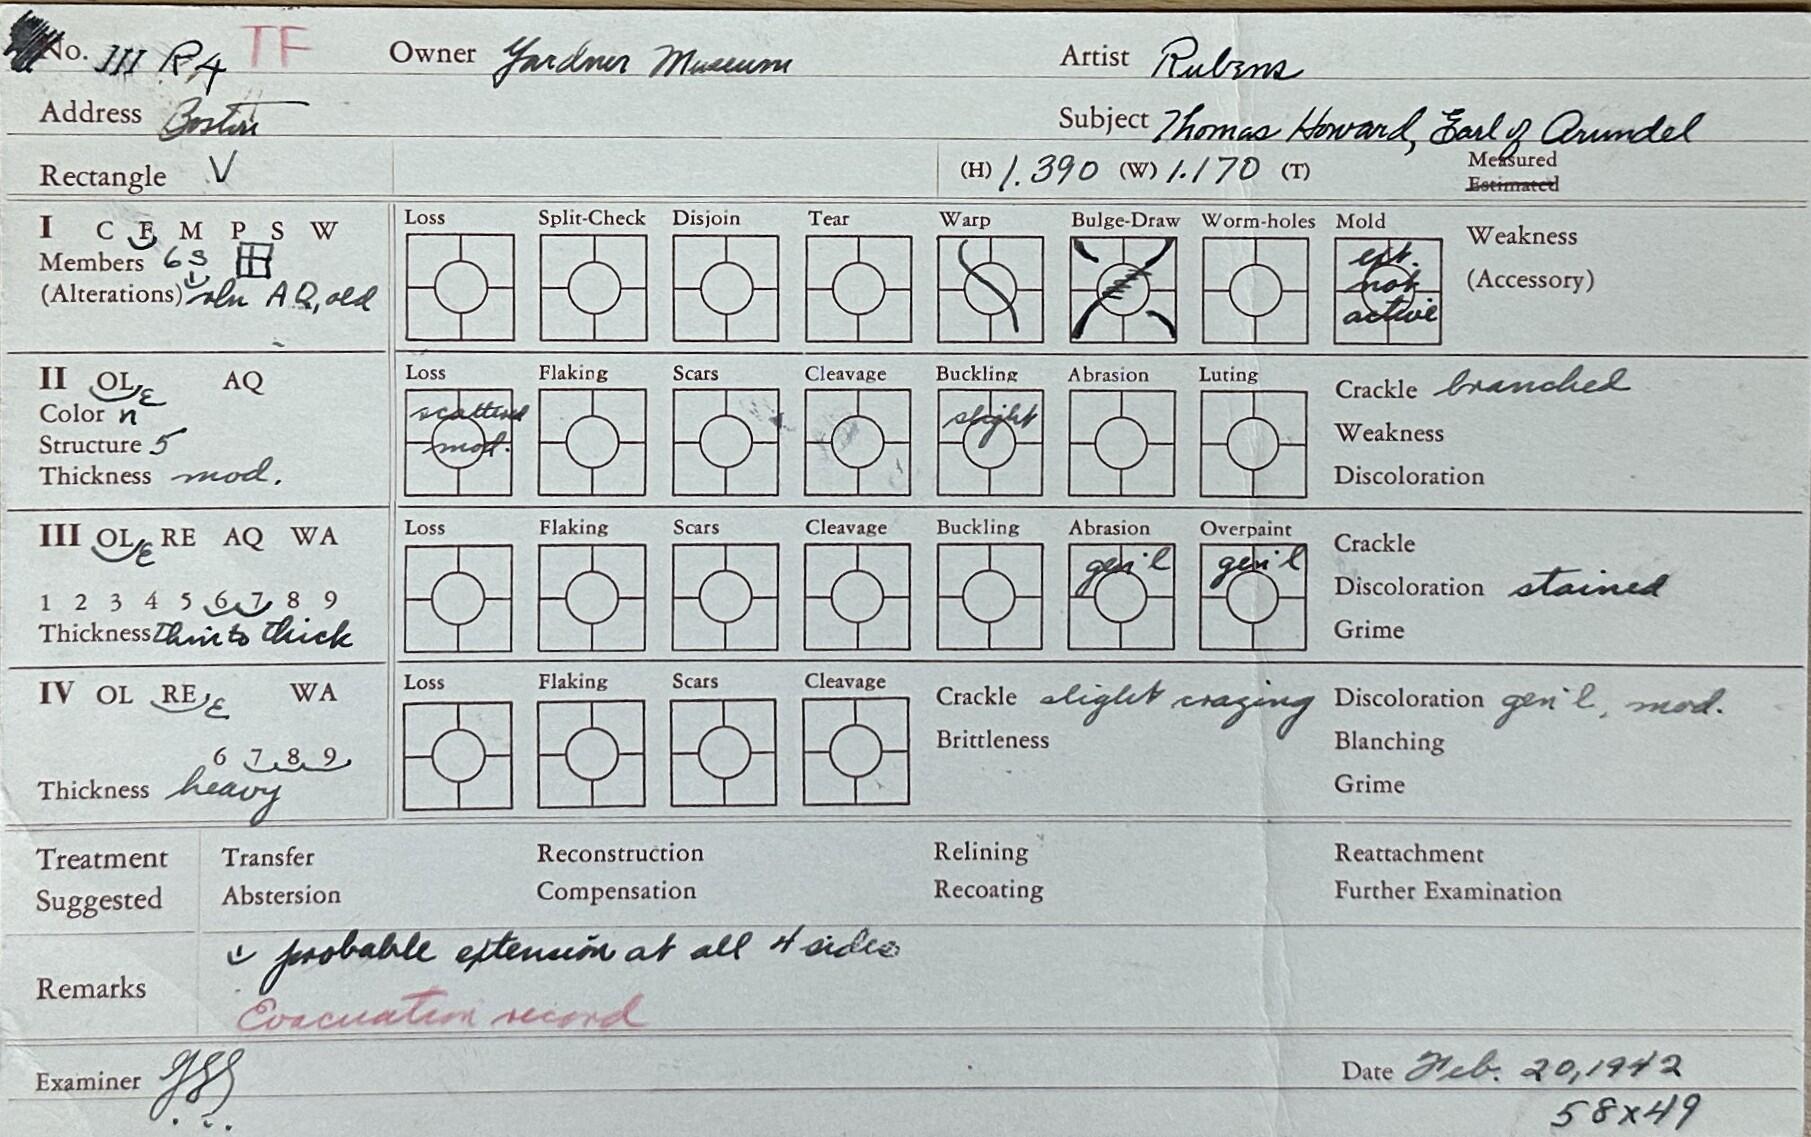 No. III R 4 TF Owner Gardner Museum Artist Rubens
Address Boston Subject Thomas Howard, Earl of Arundel
Rectangle V (H) 1.390 (W) 1.170 (T) Measured
Estimated
I C F M P S W Loss Split-Check Disjoin Tear Warp Bulge-Draw Worm-holes Mold Weakness
Members 6 S ext. not active (Accessory)
(Alterations) rln AQ, old
II OL E AQ Loss Flaking Scars Cleavage Buckling Abrasion Luting Crackle branched
Color n scattered mod. slight Weakness
Structure 5 Discoloration
Thickness mod.
III OL E RE AQ WA Loss Flaking Scars Cleavage Buckling Abrasion Overpaint Crackle
gen'l gen'l Discoloration stained
1 2 3 4 5 6 7 8 9 Grime
Thickness thin to thick
IV OL RE E WA Loss Flaking Scars Cleavage Crackle slight crazing Discoloration gen'l, mod.
6 7 8 9 Brittleness Blanching
Thickness heavy Grime
Treatment Transfer Reconstruction Relining Reattachment
Suggested Abstersion Compensation Recoating Further Examination
probable extension at all 4 sides
Remarks
Evacuation record
Examiner Date Feb. 20, 1942
58x49